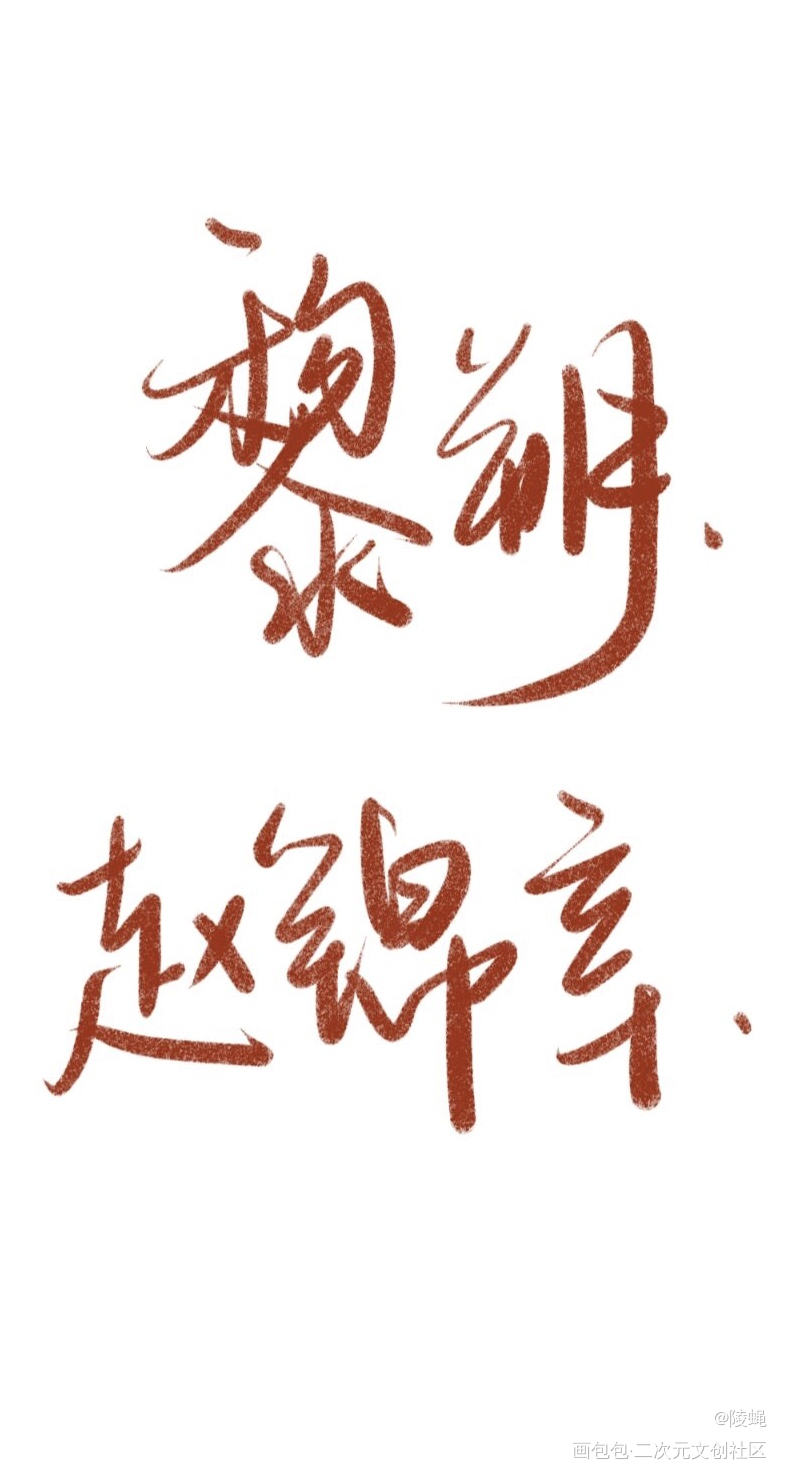 黎朔.
赵锦辛.
@陵蝇
画包包·二次元文创社区